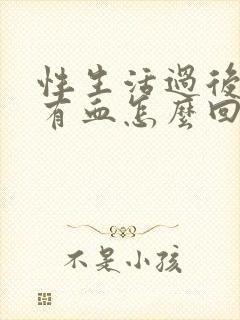 性生活過後
有血怎麼回
不是小孩